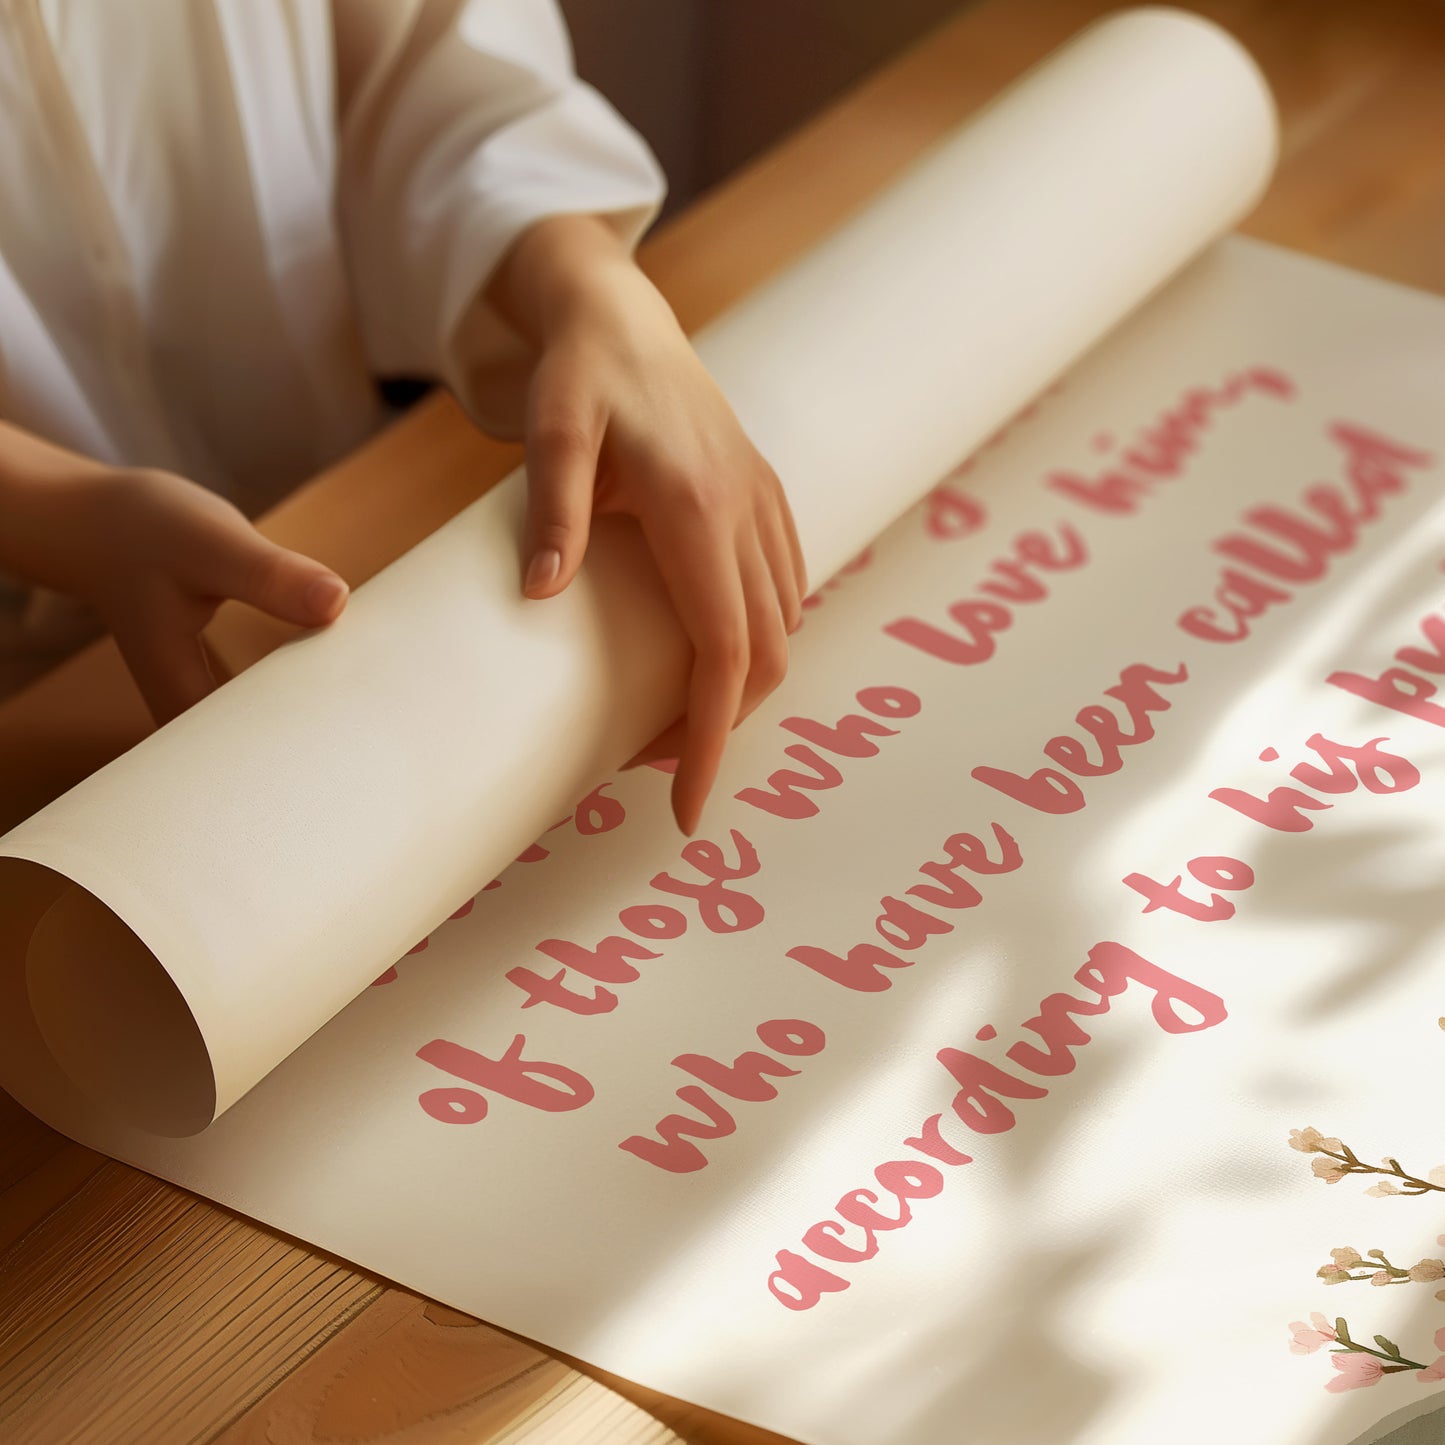 of those who love him,
who have been called
according to his